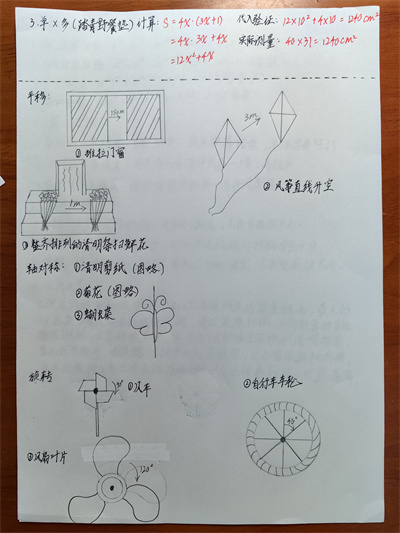 3. 单×多(踏青野餐垫) 计算: S = 4x·(3x+1) 代入验证: 12×10²+4×10=1240cm²
= 4x·3x+4x 实际测量: 40×31=1240cm²
= 12x²+4x
平移:
15cm
3m
①推拉门窗
②风筝直线升空
1m
③整齐排列的清明祭扫鲜花
轴对称: ①清明剪纸(图略)
②菊花(图略)
③蝴蝶
旋转
90°
①风车
②自行车车轮
45°
③风扇叶片
120°